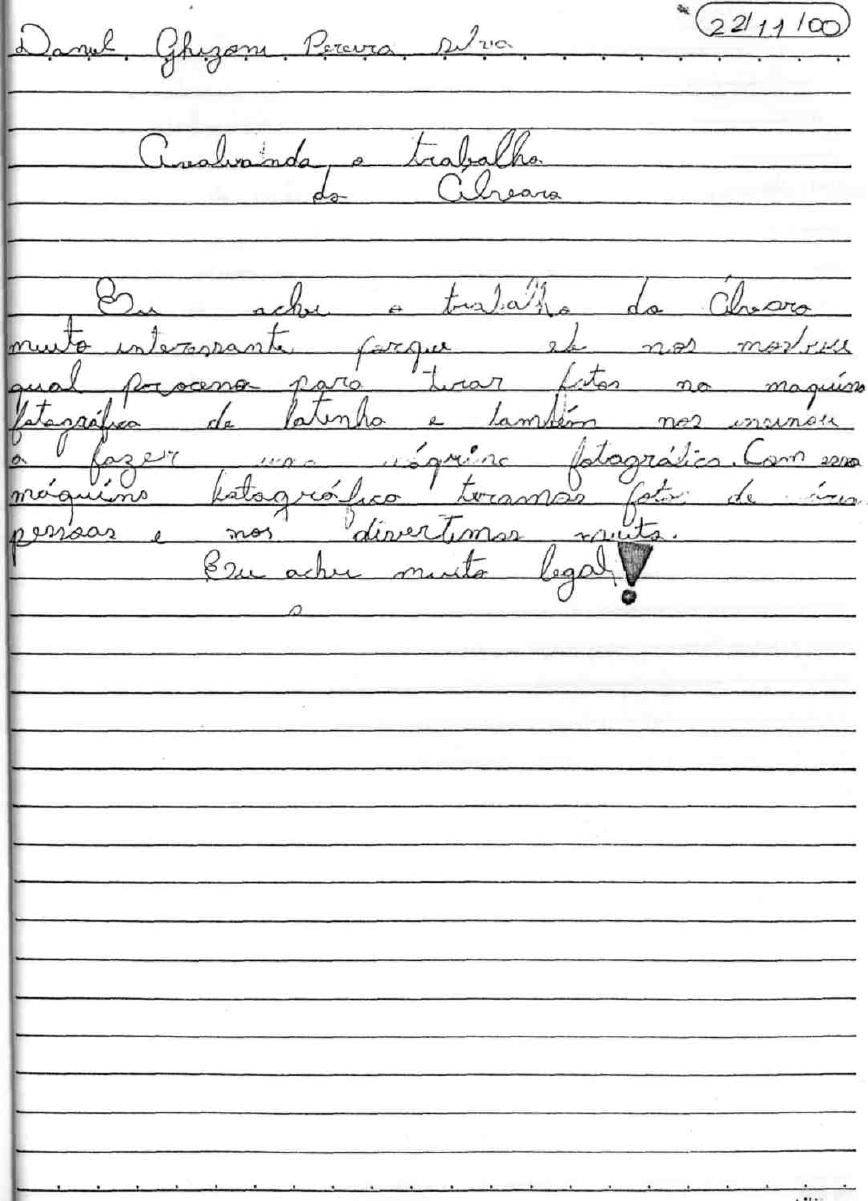 22/11/00
Daniel Ghizoni Pereira silva
Avaliando o trabalho
do Álvaro
Eu achei o trabalho do Álvaro
muito interessante porque ele nos mostrou
qual processo para tirar fotos na maquina
fotográfica de latinha e também nos insinou
a fazer uma máquina fotográfica. Com essa
máquina fotográfica tiramos foto de
pessoas e nos divertimos muito.
Eu achei muito legal!